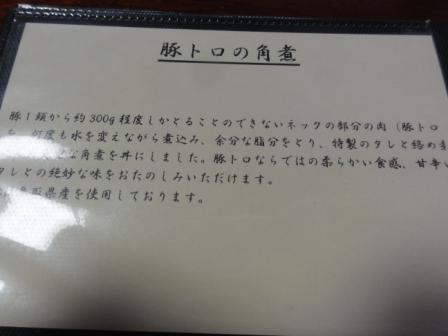 豚トロの角煮
豚1頭から約300g程度しかとることのできないネックの部分の肉(豚トロ
を、何度も水を変えながら煮込み、余分な脂分をとり、特製のタレと絡め
な角煮を丼にしました。豚トロならではの柔らかい食感、甘辛い
タレとの絶妙な味をおたのしみいただけます。
県産を使用しております。